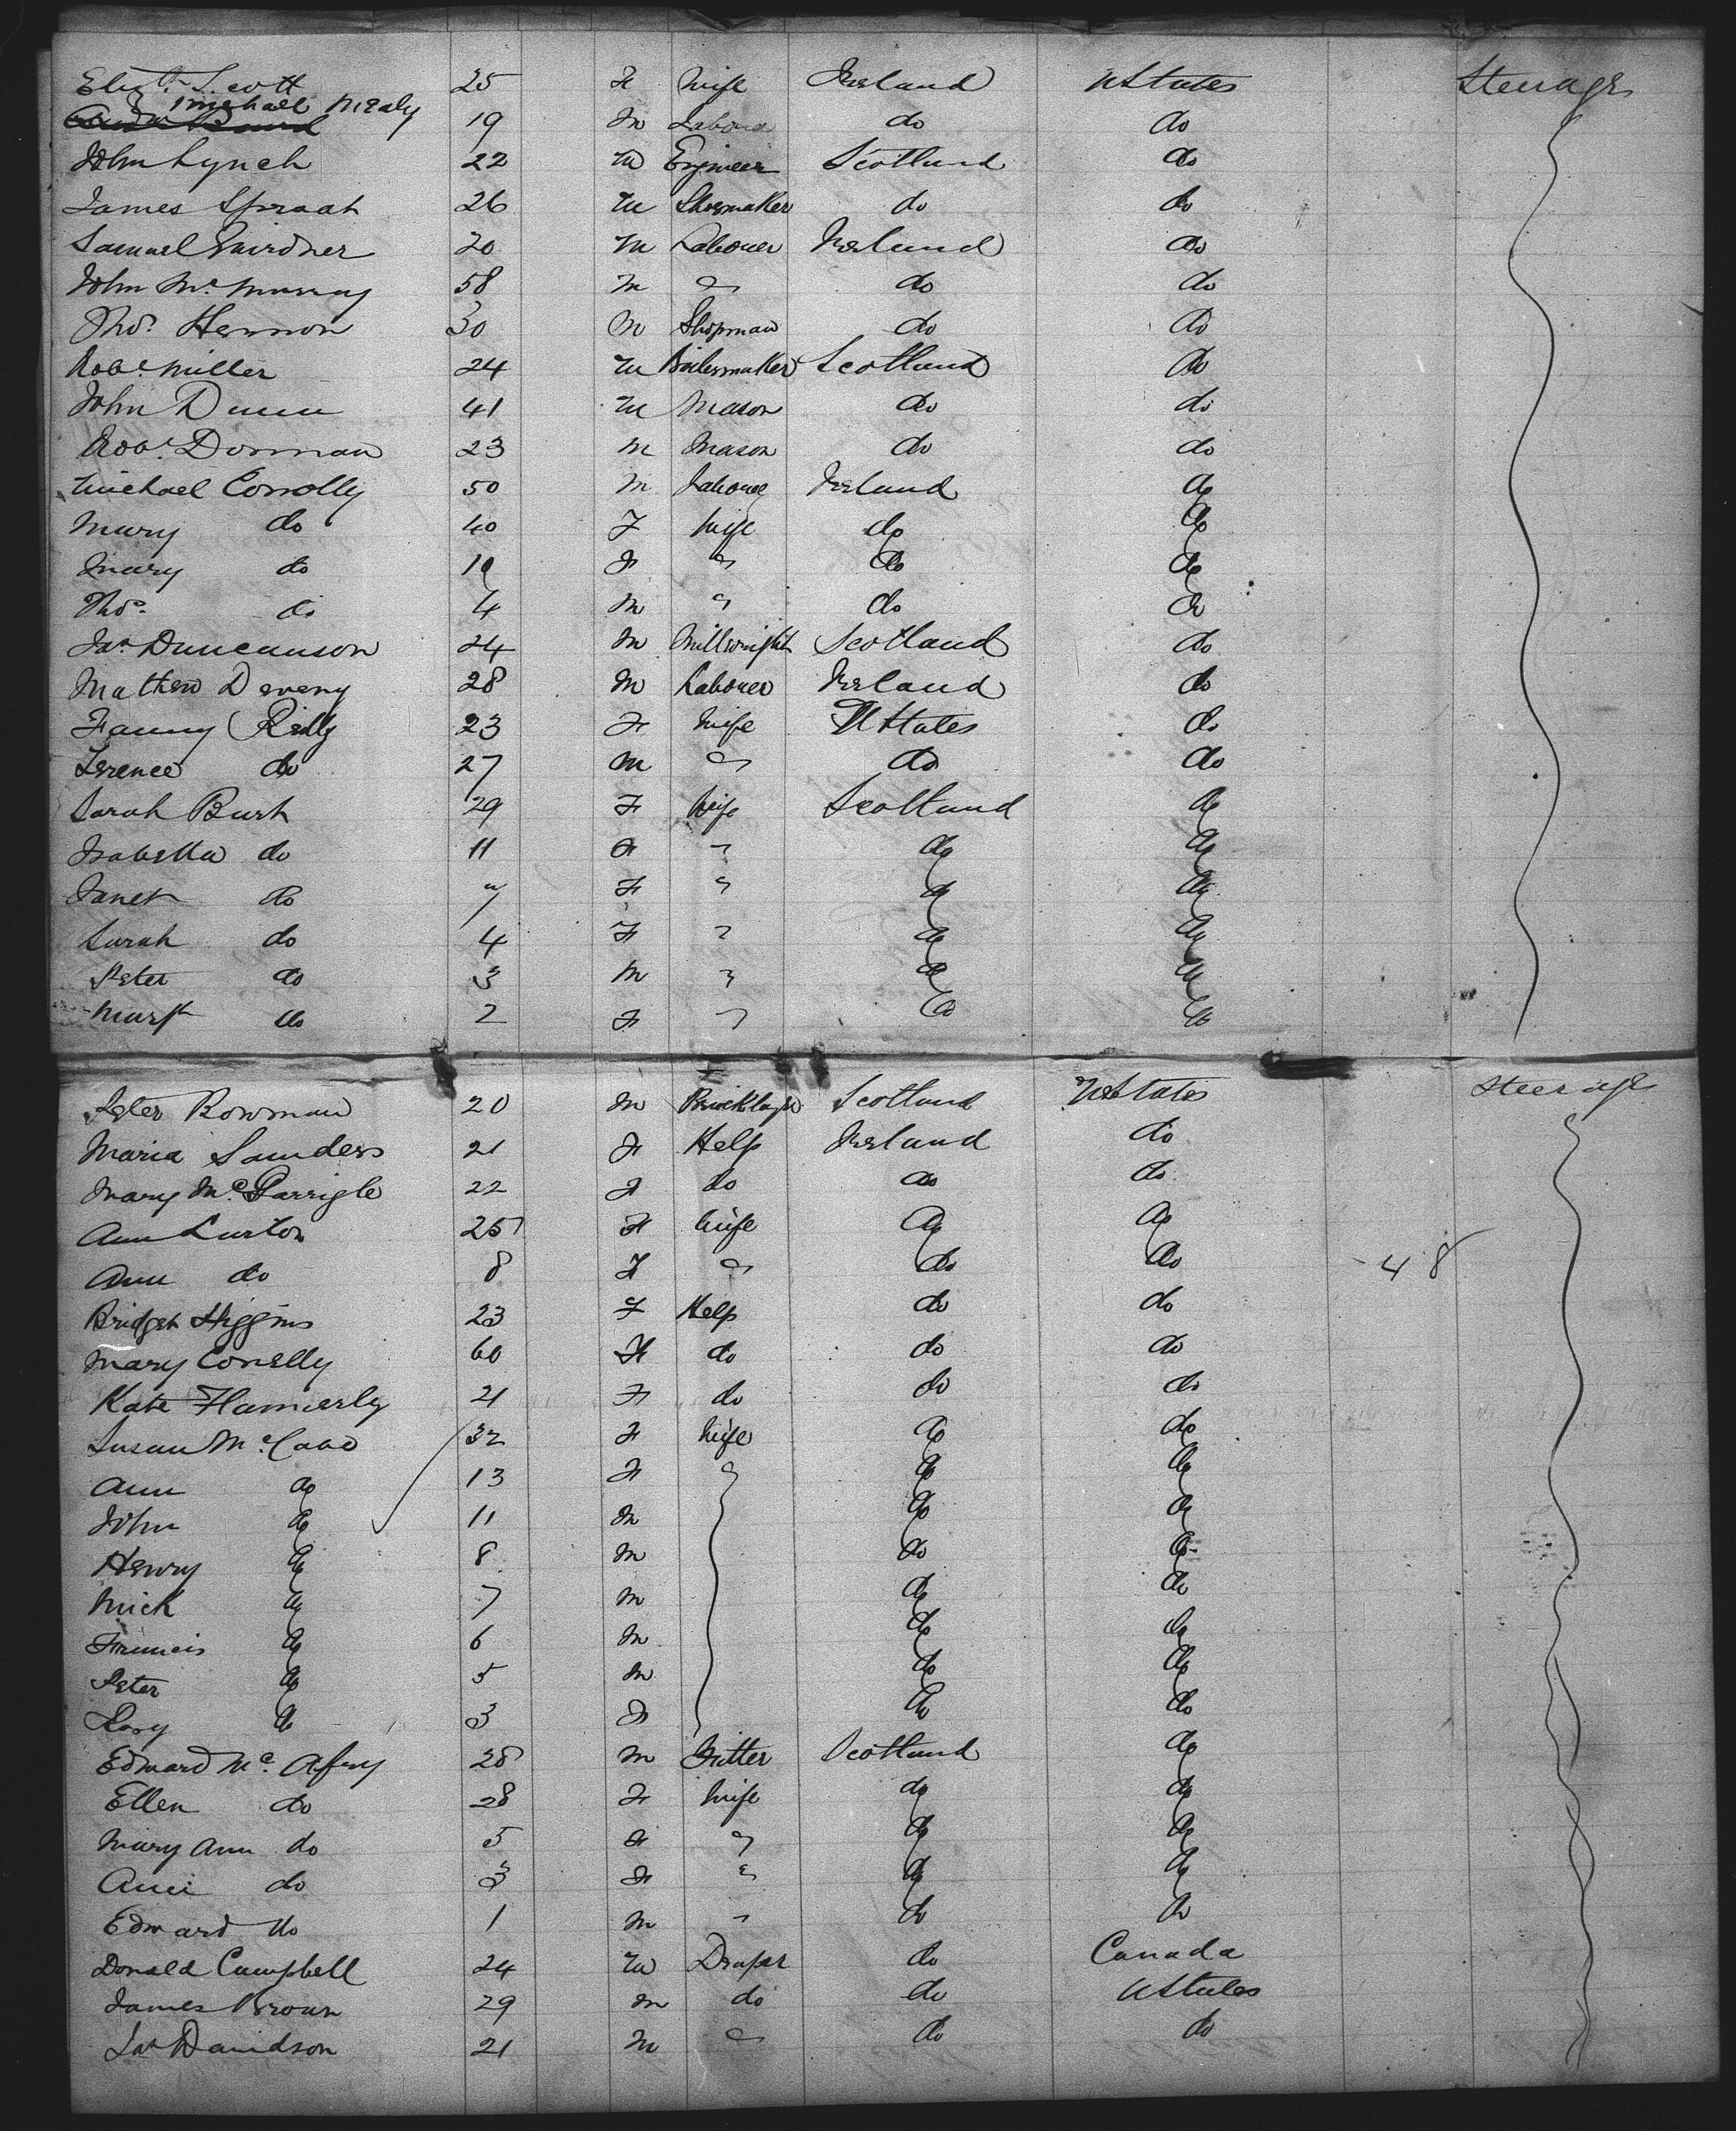 Elizth Scott 25 F Wife Ireland UStates Steerage
Michael Mealy 19 M Labourer do do
John Lynch 22 M Engineer Scotland do
James Spraat 26 M Shoemaker do do
Samuel Gairdner 20 M Labourer Ireland do
John Mc Murray 58 M " do do
Thos. Hennon 30 M Shopman do do
Robt Miller 24 M Boilermaker Scotland do
John Dunn 41 M Mason do do
Robt. Dorman 23 M Mason do do
Michael Conolly 50 M Labourer Ireland do
Mary do 40 F Wife do do
Mary do 19 F " do do
Thos. do 4 M " do do
Jas Duncanson 24 M Millwright Scotland do
Mathew Deveny 28 M Labourer Ireland do
Fanny Reilly 23 F Wife UStates do
Terence do 27 M " do do
Sarah Burt 29 F Wife Scotland do
Isabella do 11 F " do do
Janet do 7 F " do do
Sarah do 4 F " do do
Peter do 3 M " do do
Margt do 2 F " do do
Peter Bowman 20 M Bricklayer Scotland UStates Steerage
Maria Saunders 21 F Help Ireland do
Mary Mc Garrigle 22 F do do do
Ann Lurton 25 F Wife do do
Ann do 8 F " do do 48
Bridget Higgins 23 F Help do do
Mary Conelly 60 F do do do
Kate Hamerly 21 F do do do
Susan Mc Cabe 32 F Wife do do
Ann do 13 F do do
John do 11 M do do
Henry do 8 M do do
Mick do 7 M do do
Francis do 6 M do do
Peter do 5 M do do
Rosy do 3 F do do
Edward Mc Afery 28 M Fitter Scotland do
Ellen do 28 F Wife do do
Mary Ann do 5 F " do do
do 3 F " do do
Edward do 1 M " do do
Donald Campbell 24 M Draper do Canada
James Brown 29 M do do UStates
Jas Davidson 21 M " do do